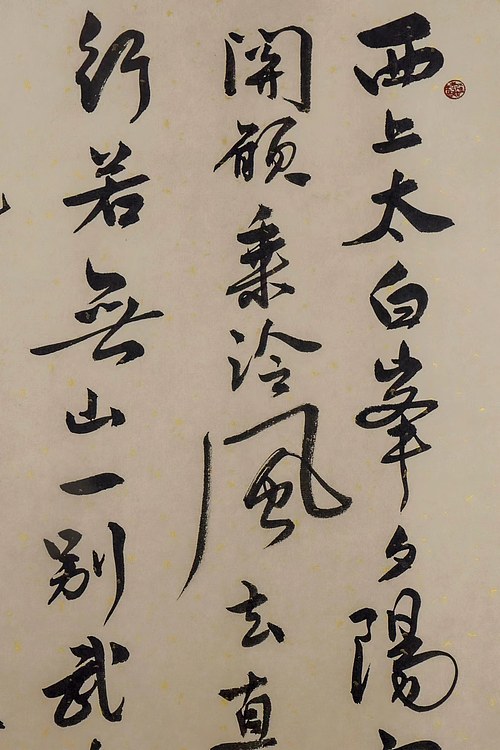 西上太白峯夕陽
開願乘泠風去直
行若無山一別武